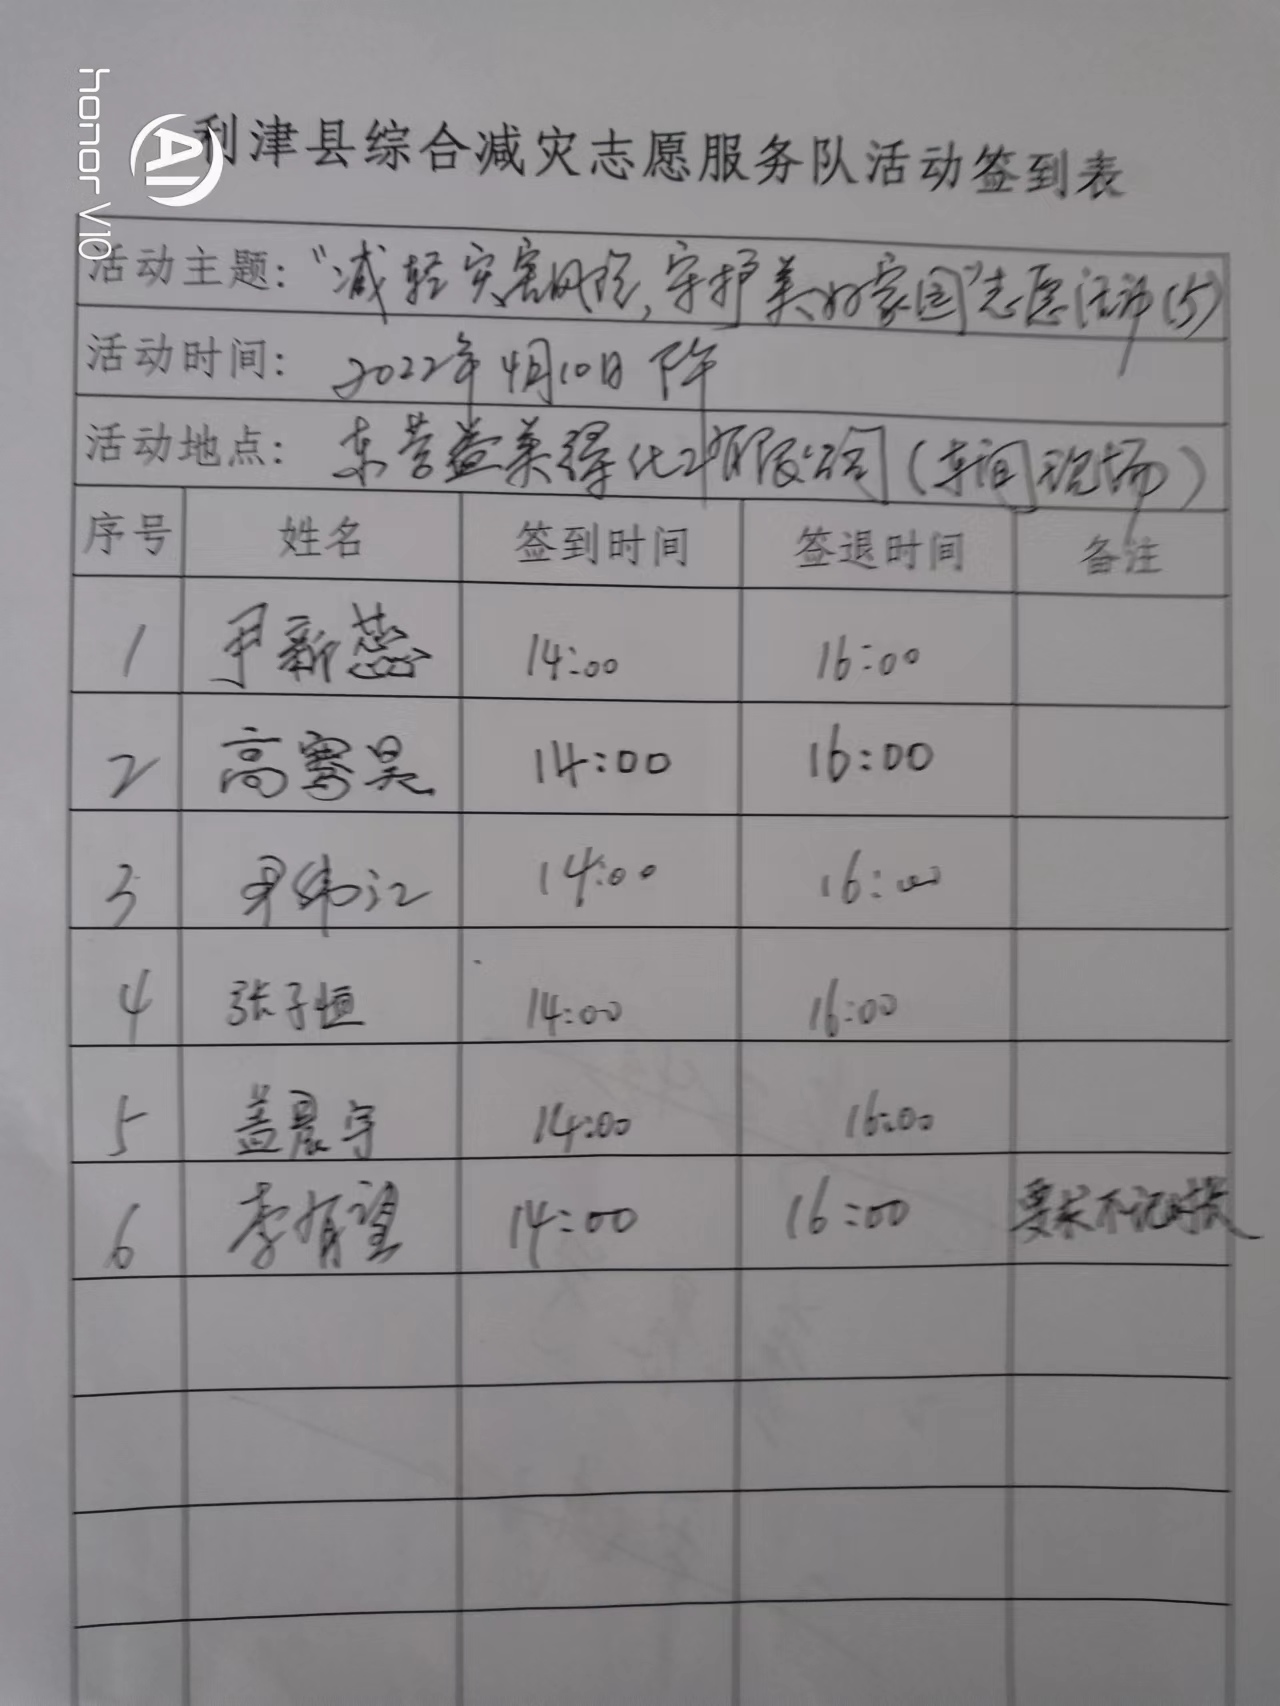 honor V10
AI
利津县综合减灾志愿服务队活动签到表
活动主题：“减轻灾害风险，守护美好家园”志愿活动（5）
活动时间：2022年4月10日下午
活动地点：东营益美得化工有限公司（车间现场）
序号 姓名 签到时间 签退时间 备注
1 尹新蕊 14:00 16:00
2 高骞昊 14:00 16:00
3 尹纬江 14:00 16:00
4 张子恒 14:00 16:00
5 盖晨宇 14:00 16:00
6 李有望 14:00 16:00 要求不记时长